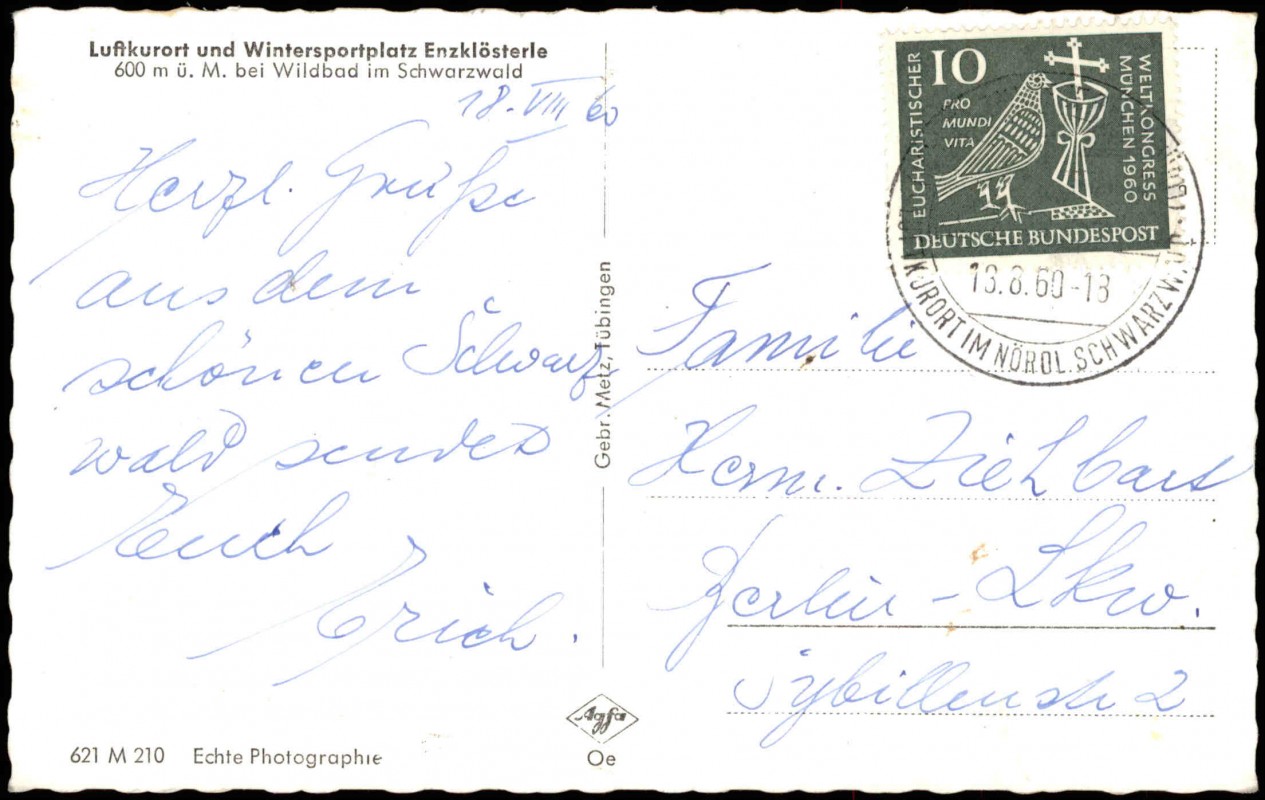 Luftkurort und Wintersportplatz Enzklösterle
600 m ü. M. bei Wildbad im Schwarzwald
18. VIII 60
Herzl. Grüße
aus dem
schönen Schwarz
wald sendet
Euch
Erich.
621 M 210 Echte Photographie
Gebr. Metz, Tübingen
Agfa
Oe
10
EUCHARISTISCHER
WELTKONGRESS
MÜNCHEN 1960
PRO
MUNDI
VITA
DEUTSCHE BUNDESPOST
18.8.60-18
KURORT IM NÖRDL. SCHWARZW.
Familie
Herm. Ziehbart
Berlin - Lkw.
Sybillenstr 2